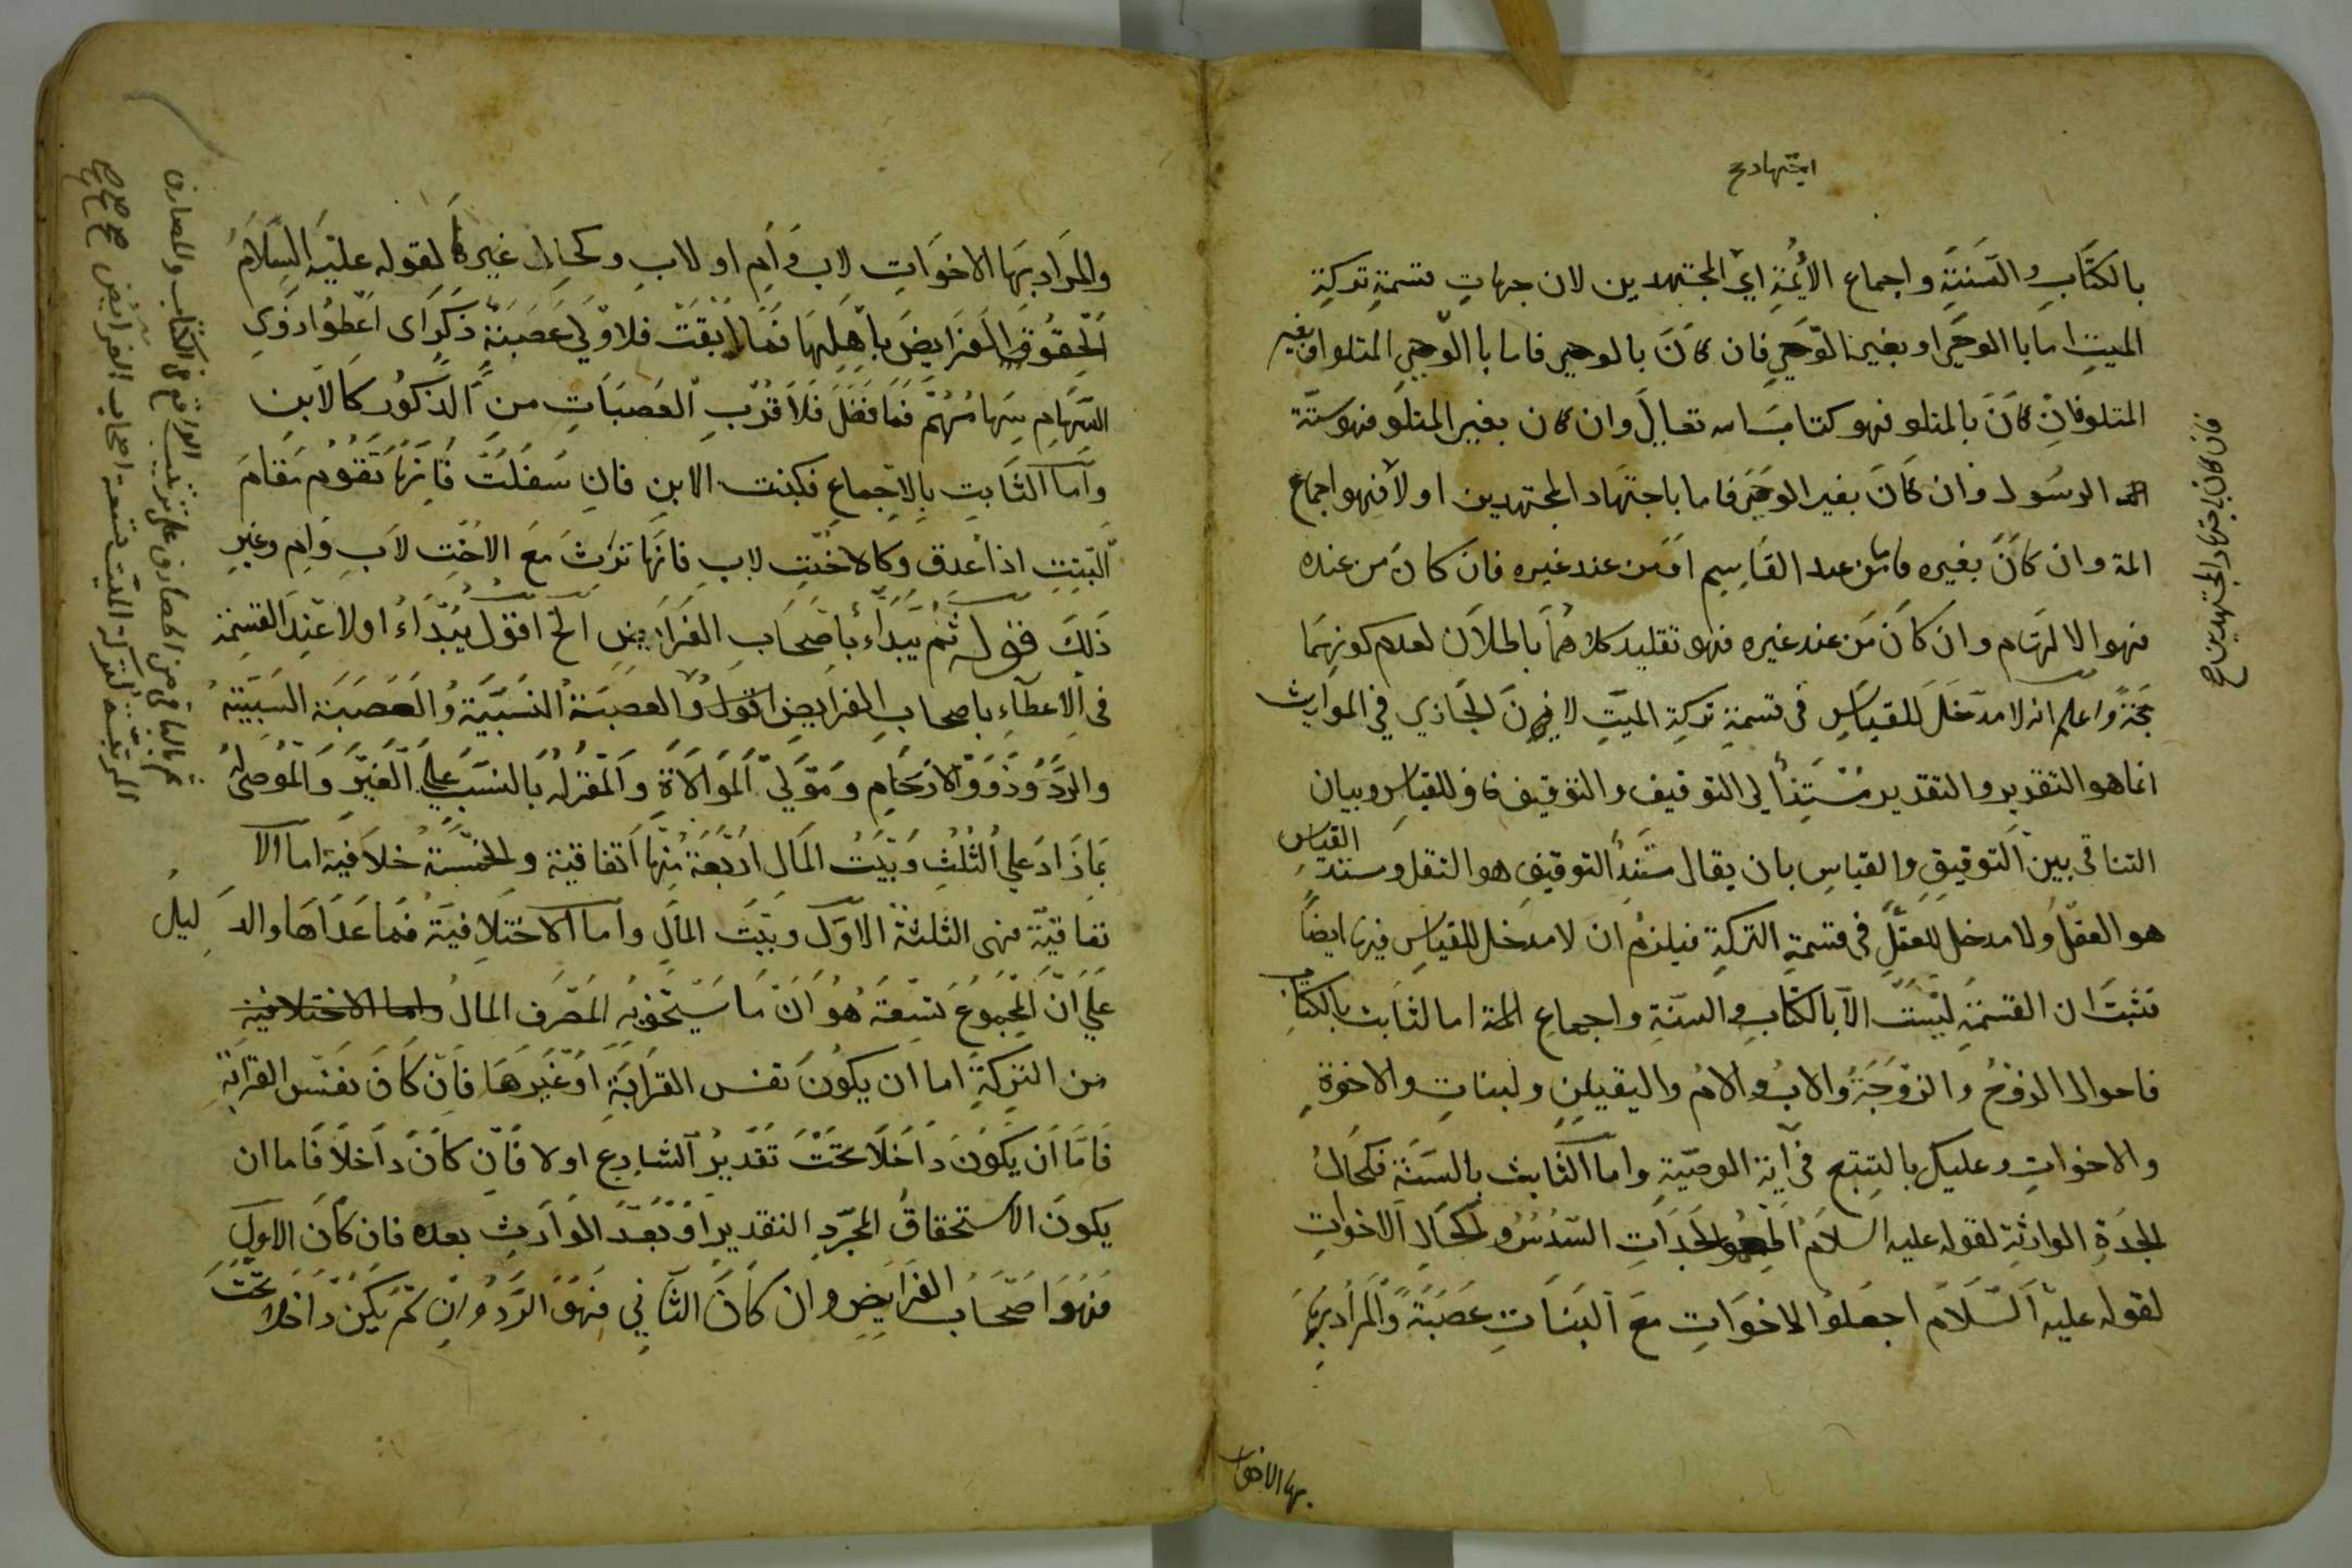 اجتهاد صح
بالكتاب والسنة واجماع الأئمة اى المجتهدين لان جهات قسمة تركة
الميت اما بالوحى او بغير الوحي فان كان بالوحي فاما باالوحي المتلو او بغير
المتلو فان كان بالمتلو فهو كتاب الله تعالى وان كان بغير المتلو فهو سنة
الرسول وان كان بغير الوحى فاما باجتهاد المجتهدين او لا فهو اجماع
المة وان كان بغيره فاما من عند القاسم او من عند غيره فان كان من عنده
فهو الالهام وان كان من عند غيره فهو تقليد كلاهما باطلان لعدم كونهما
حجة واعلم انه لا مدخل للقياس فى قسمة تركة الميت لان الجاري في المواريث
انما هو التقدير والتقدير مستندأ لى التوقيف والتوقيف مناف للقياس وبيان
التنافى بين التوقيف والقياس بان يقال مستند التوقيف هو النقل ومستند القياس
هو العقل ولا مدخل للعقل فى قسمة التركة فيلزم ان لا مدخل للقياس فيها ايضاً
فثبت ان القسمة ليست الا بالكتاب والسنة واجماع المة اما الثابت بالكتاب
فاحوال الزوج والزوجة والاب والام والبنات والاخوة
والاخوات وعليك بالتتبع فى آية الوصية واما الثابت بالسنة فكحال
الجدة الوارثة لقوله عليه السلام الجدات السدس وكحال الاخوات
لقوله عليه السلام اجعلوا الاخوات مع البنات عصبة والمراد بها
بها الاخوات
فان كان باجتهاد المجتهدين صح
والمراد بها الاخوات لاب وام او لاب وكحال غيرها لقوله عليه السلام
الحقوا الفرايض باهلها فما ابقت فلاولي عصبة ذكر اى اعطوا ذوي
السهام سهامهم فما فضل فلاقرب العصبات من الذكور كالابن
واما الثابت بالاجماع فكبنت الابن فان سفلت فانها تقوم مقام
البنت اذا عدمت وكالاخت لاب فانها ترث مع الاخت لاب وام وغير
ذلك قوله ثم يبدأ باصحاب الفرايض الخ اقول يبدأ اولا عند القسمة
فى الاعطاء باصحاب الفرايض اقول والعصبة النسبية والعصبة السببية
والرد وذوو الارحام ومولي الموالاة والمقر له بالنسب علي الغير والموصى له
بما زاد علي الثلث وبيت المال اربعة منها اتفاقية والخمسة خلافية اما الا
تفاقية فهى الثلثة الاول وبيت المال واما الاختلافية فما عداها والد ليل
علي ان المجموع تسعة هو ان ما سيتحق به المصرف المال واما الاختلافية
من التركة اما ان يكون نفس القرابة او غيرها فان كان نفس القرابة
فاما ان يكون داخلا تحت تقدير الشارع اولا فان كان داخلا فاما ان
يكون الاستحقاق المجرد التقدير او بعد الوارث بعده فان كان الاول
فهو اصحاب الفرايض وان كان الثاني فهو الرد وان لم يكن داخلا تحت
ثم الباقى من المصارف على ترتيب الواقع فى الكتاب والمصارف
المرتبة لتركة الميت تسعة اصحاب الفرايض صح صح صح